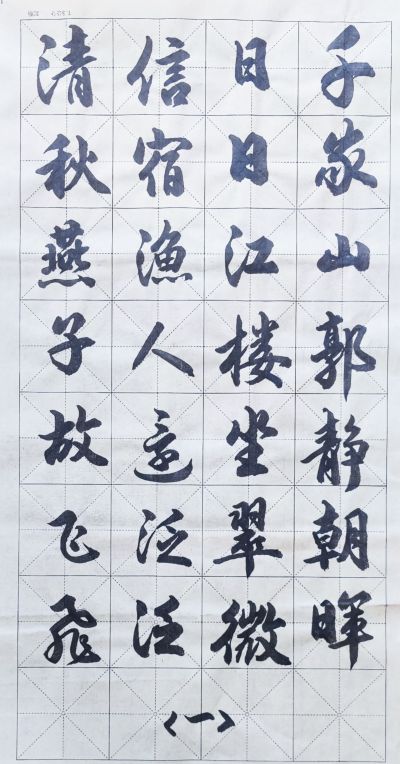 千家山郭静朝晖
日日江楼坐翠微
信宿渔人还泛泛
清秋燕子故飞飞
<一>